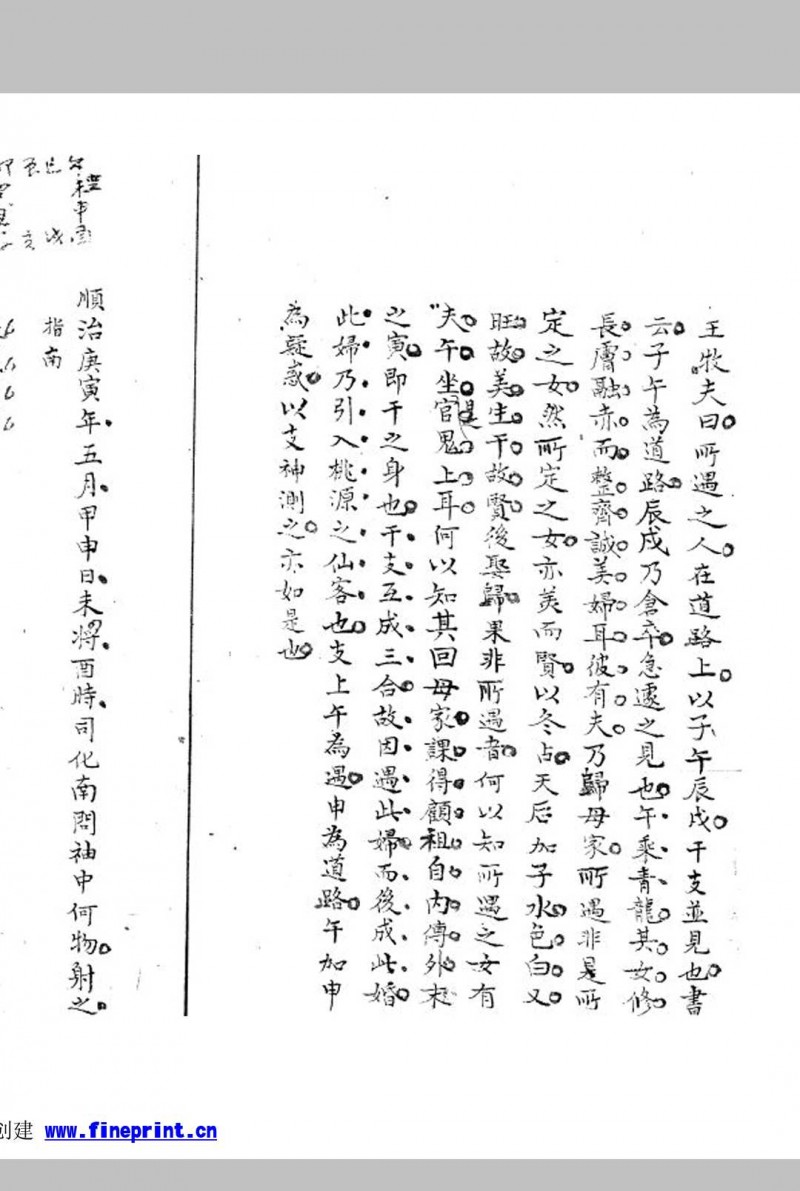 王牧夫曰所遇之人在道路上以子午辰戌干支並見也書
云子午為道路辰戌乃倉卒急遽之見也午乘青龍其女修
長膚融赤而整齊誠美婦耳彼有夫乃歸母家所遇非是所
定之女然所定之女亦美而賢以冬占天后加子水色白又
旺故美生干故賢後娶歸果非所遇者何以知所遇之女有
夫午坐官鬼上耳何以知其回母家課得顧祖自內傳外末
之寅即干之身也干支互成三合故因遇此婦而後成此婚
此婦乃引入桃源之仙客也支上午為遇申為道路午加申
為疑惑以支神測之亦如是也
順治庚寅年五月甲申日未將酉時司化南問袖中何物射之
指南
创建 www.fineprint.cn